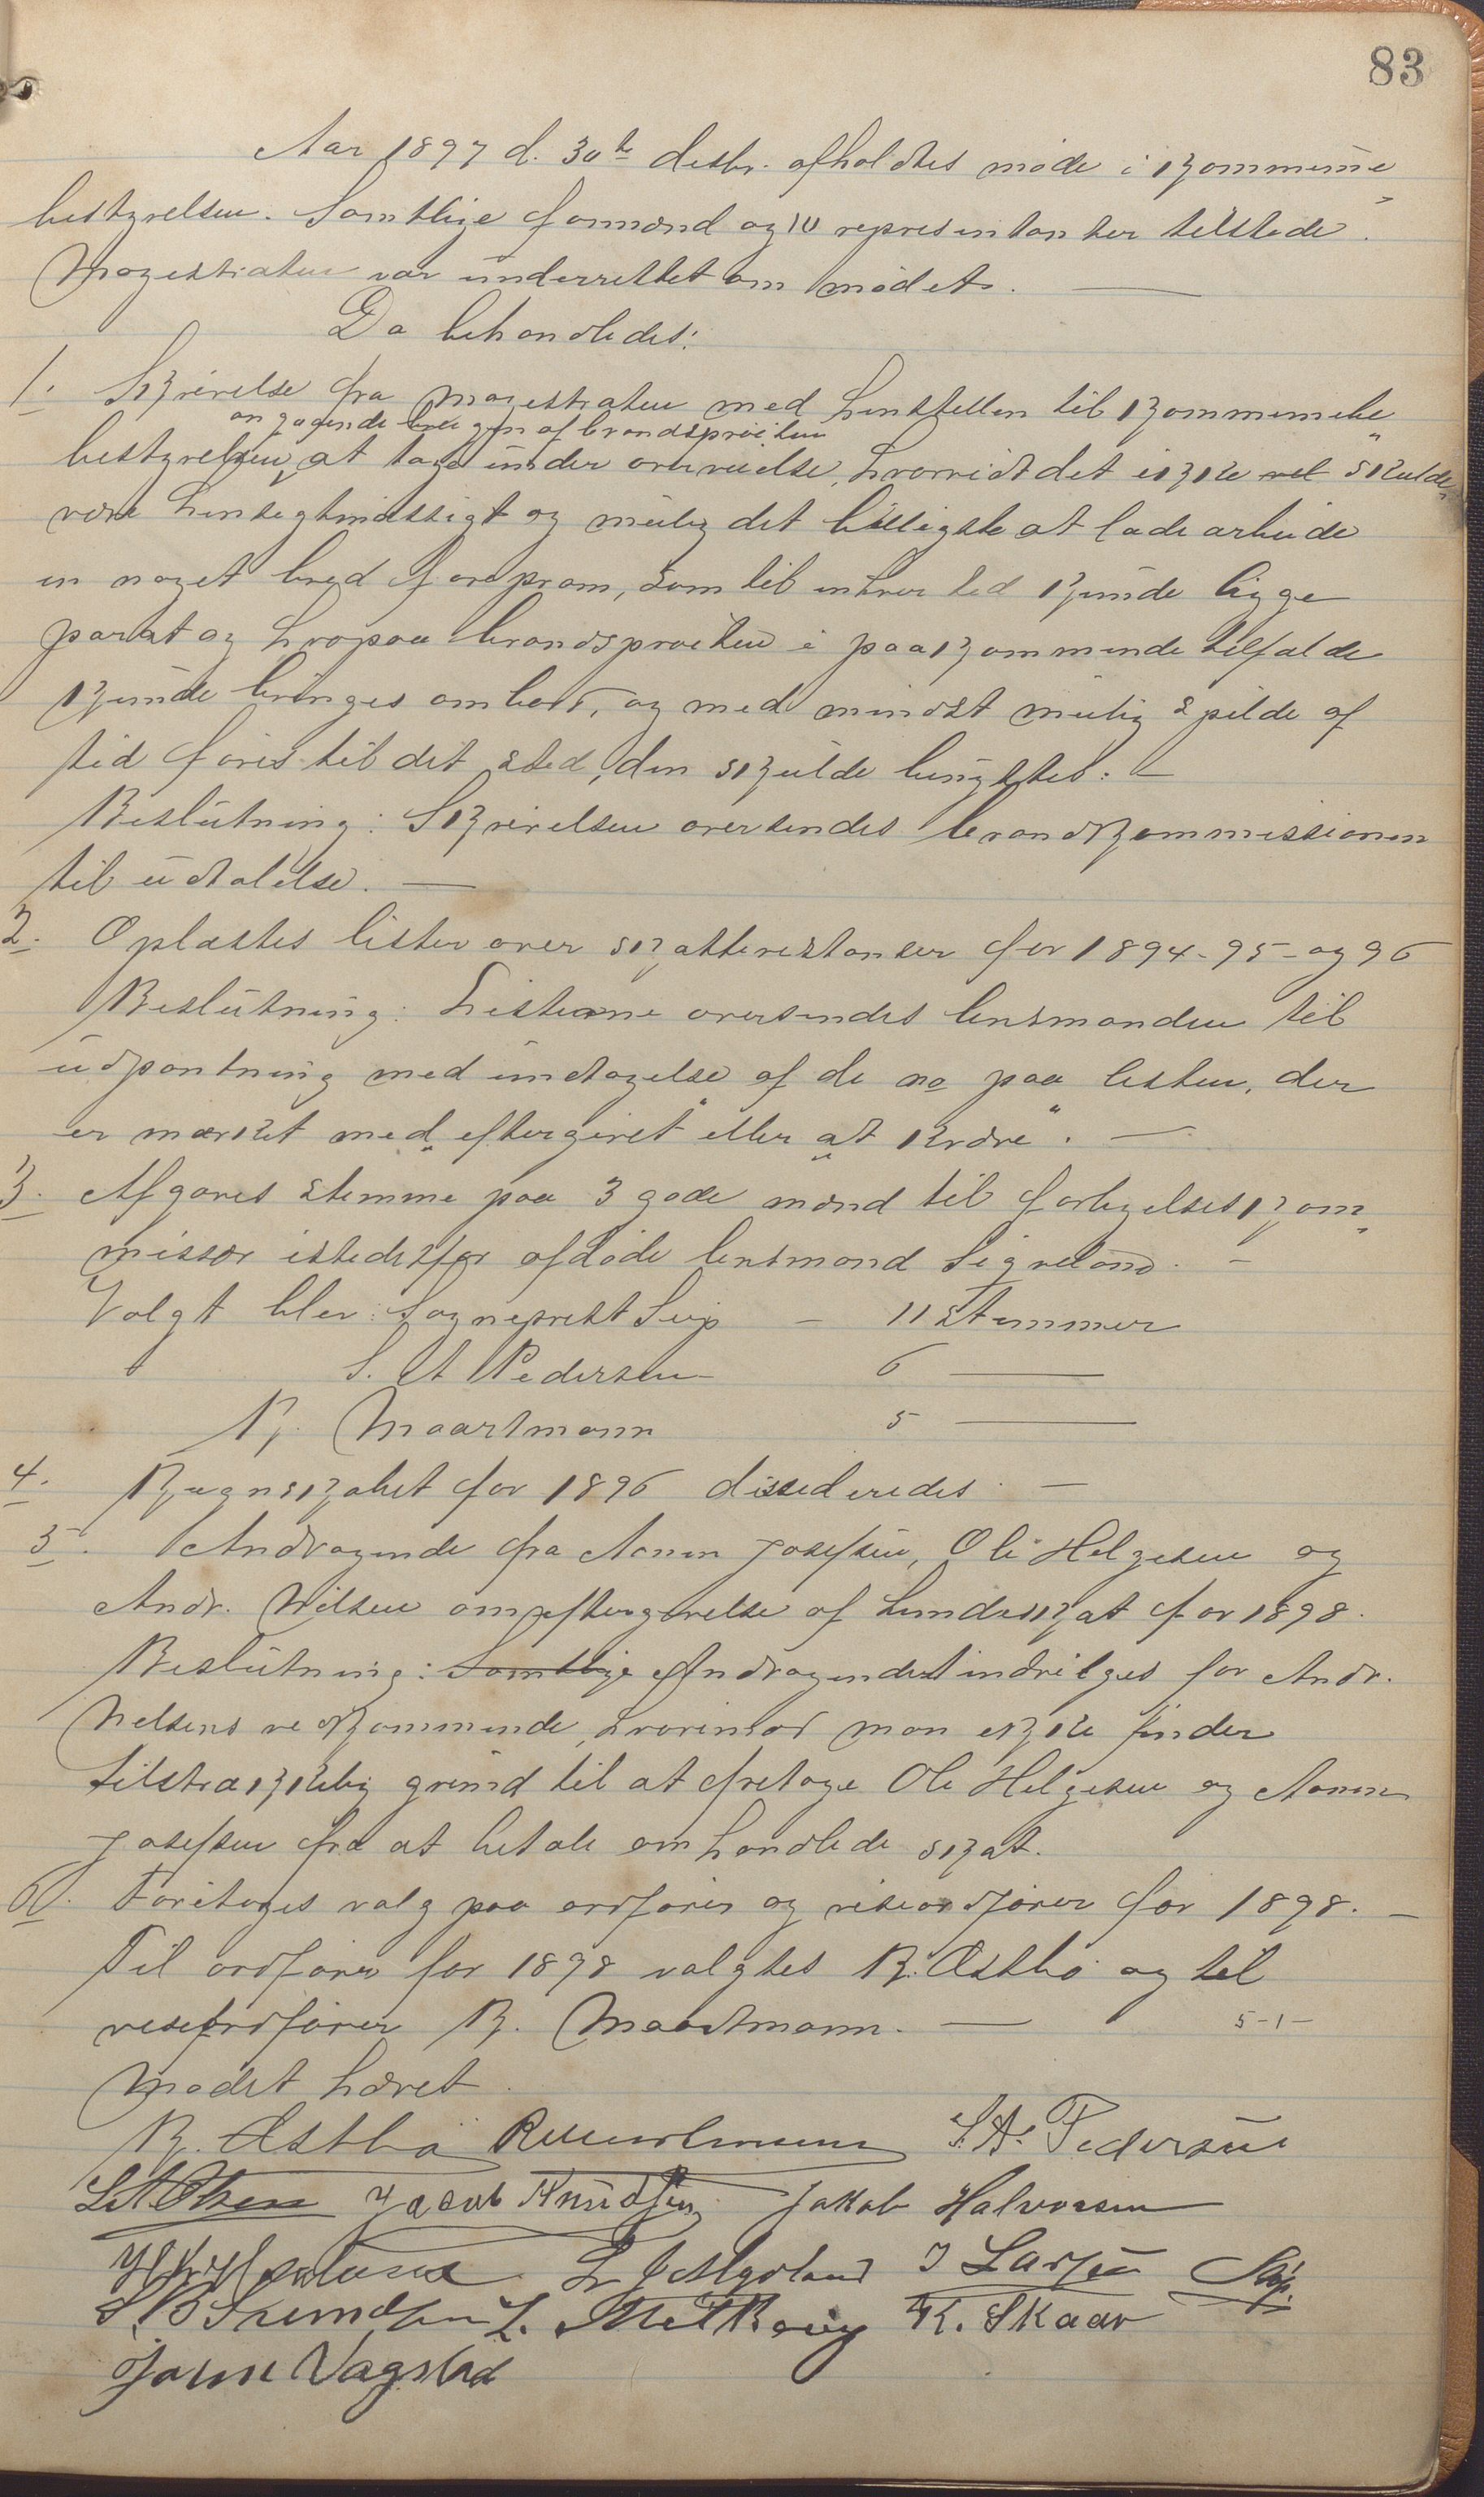 83
Aar 1897 d. 30te desbr. afholdtes møde i kommune
bestyrelsen. Samtlige formænd og 10 representanter tilstede.
Magestraten var underrettet om mødet. —
Da behandledes:
1. Skrivelse fra magestraten med henstellen til kommune
angaaende brugen af brandsprøiten
bestyrelsen, at tage under overveielse, hvorvidt det ikke vel skulde
være hensegtmæssigt og mulig det billigste at lade arbeide
en noget bred førepram, som til enhver tid kunde ligge
parat og hvorpaa brandsprøiten i paakommende tilfælde
kunde bringes ombord, og med mindst mulig spilde af
tid føres til det sted, den skulde benyttes. —
Beslutning: Skrivelsen oversendes brandkommissionen
til udtalelse. —
2. Oplæstes lister over skatterestanser for 1894-95- og 96
Beslutning: Listerne oversendes lensmanden til
udpantning med undtagelse af de no paa listen, der
er mærket med „eftergivet" eller „at kræve". —
3. Afgaves stemme paa 3 gode mænd til forligelseskom
missær istedetfor afdøde lensmand Sigveland. —
Valgt blev: Sogneprest Seip — 11 stemmer
S. A Pedersen 6 —
R. Maartmann 5 —
4. Regnskabet for 1896 dissederedes. —
5. Andragende fra Aanen Josefsen, Ole Helgesen og
Andr. Nilsen om eftergivelse af hundeskat for 1898.
Beslutning: Samtlige Andragendet indvilges for Andr.
Nelsens vedkommende, hvorimod man ikke finder
tilstrækkelig grund til at fretage Ole Helgesen og Aanen
Josefsen fra at betale omhandlede skat.
6. Foretoges valg paa ordfører og viseordfører for 1898. —
Til ordfører for 1898 valgtes R. Østbø og til
viseordfører R. Maartmann. — 5-1-
Mødet hævet.
R. Østbø R Maartmann S. A. Pedersen
L A Olsen Jacob Knudsen Jakob Halvorsen
J Larsen Seip
K. Skaar
Vagstad